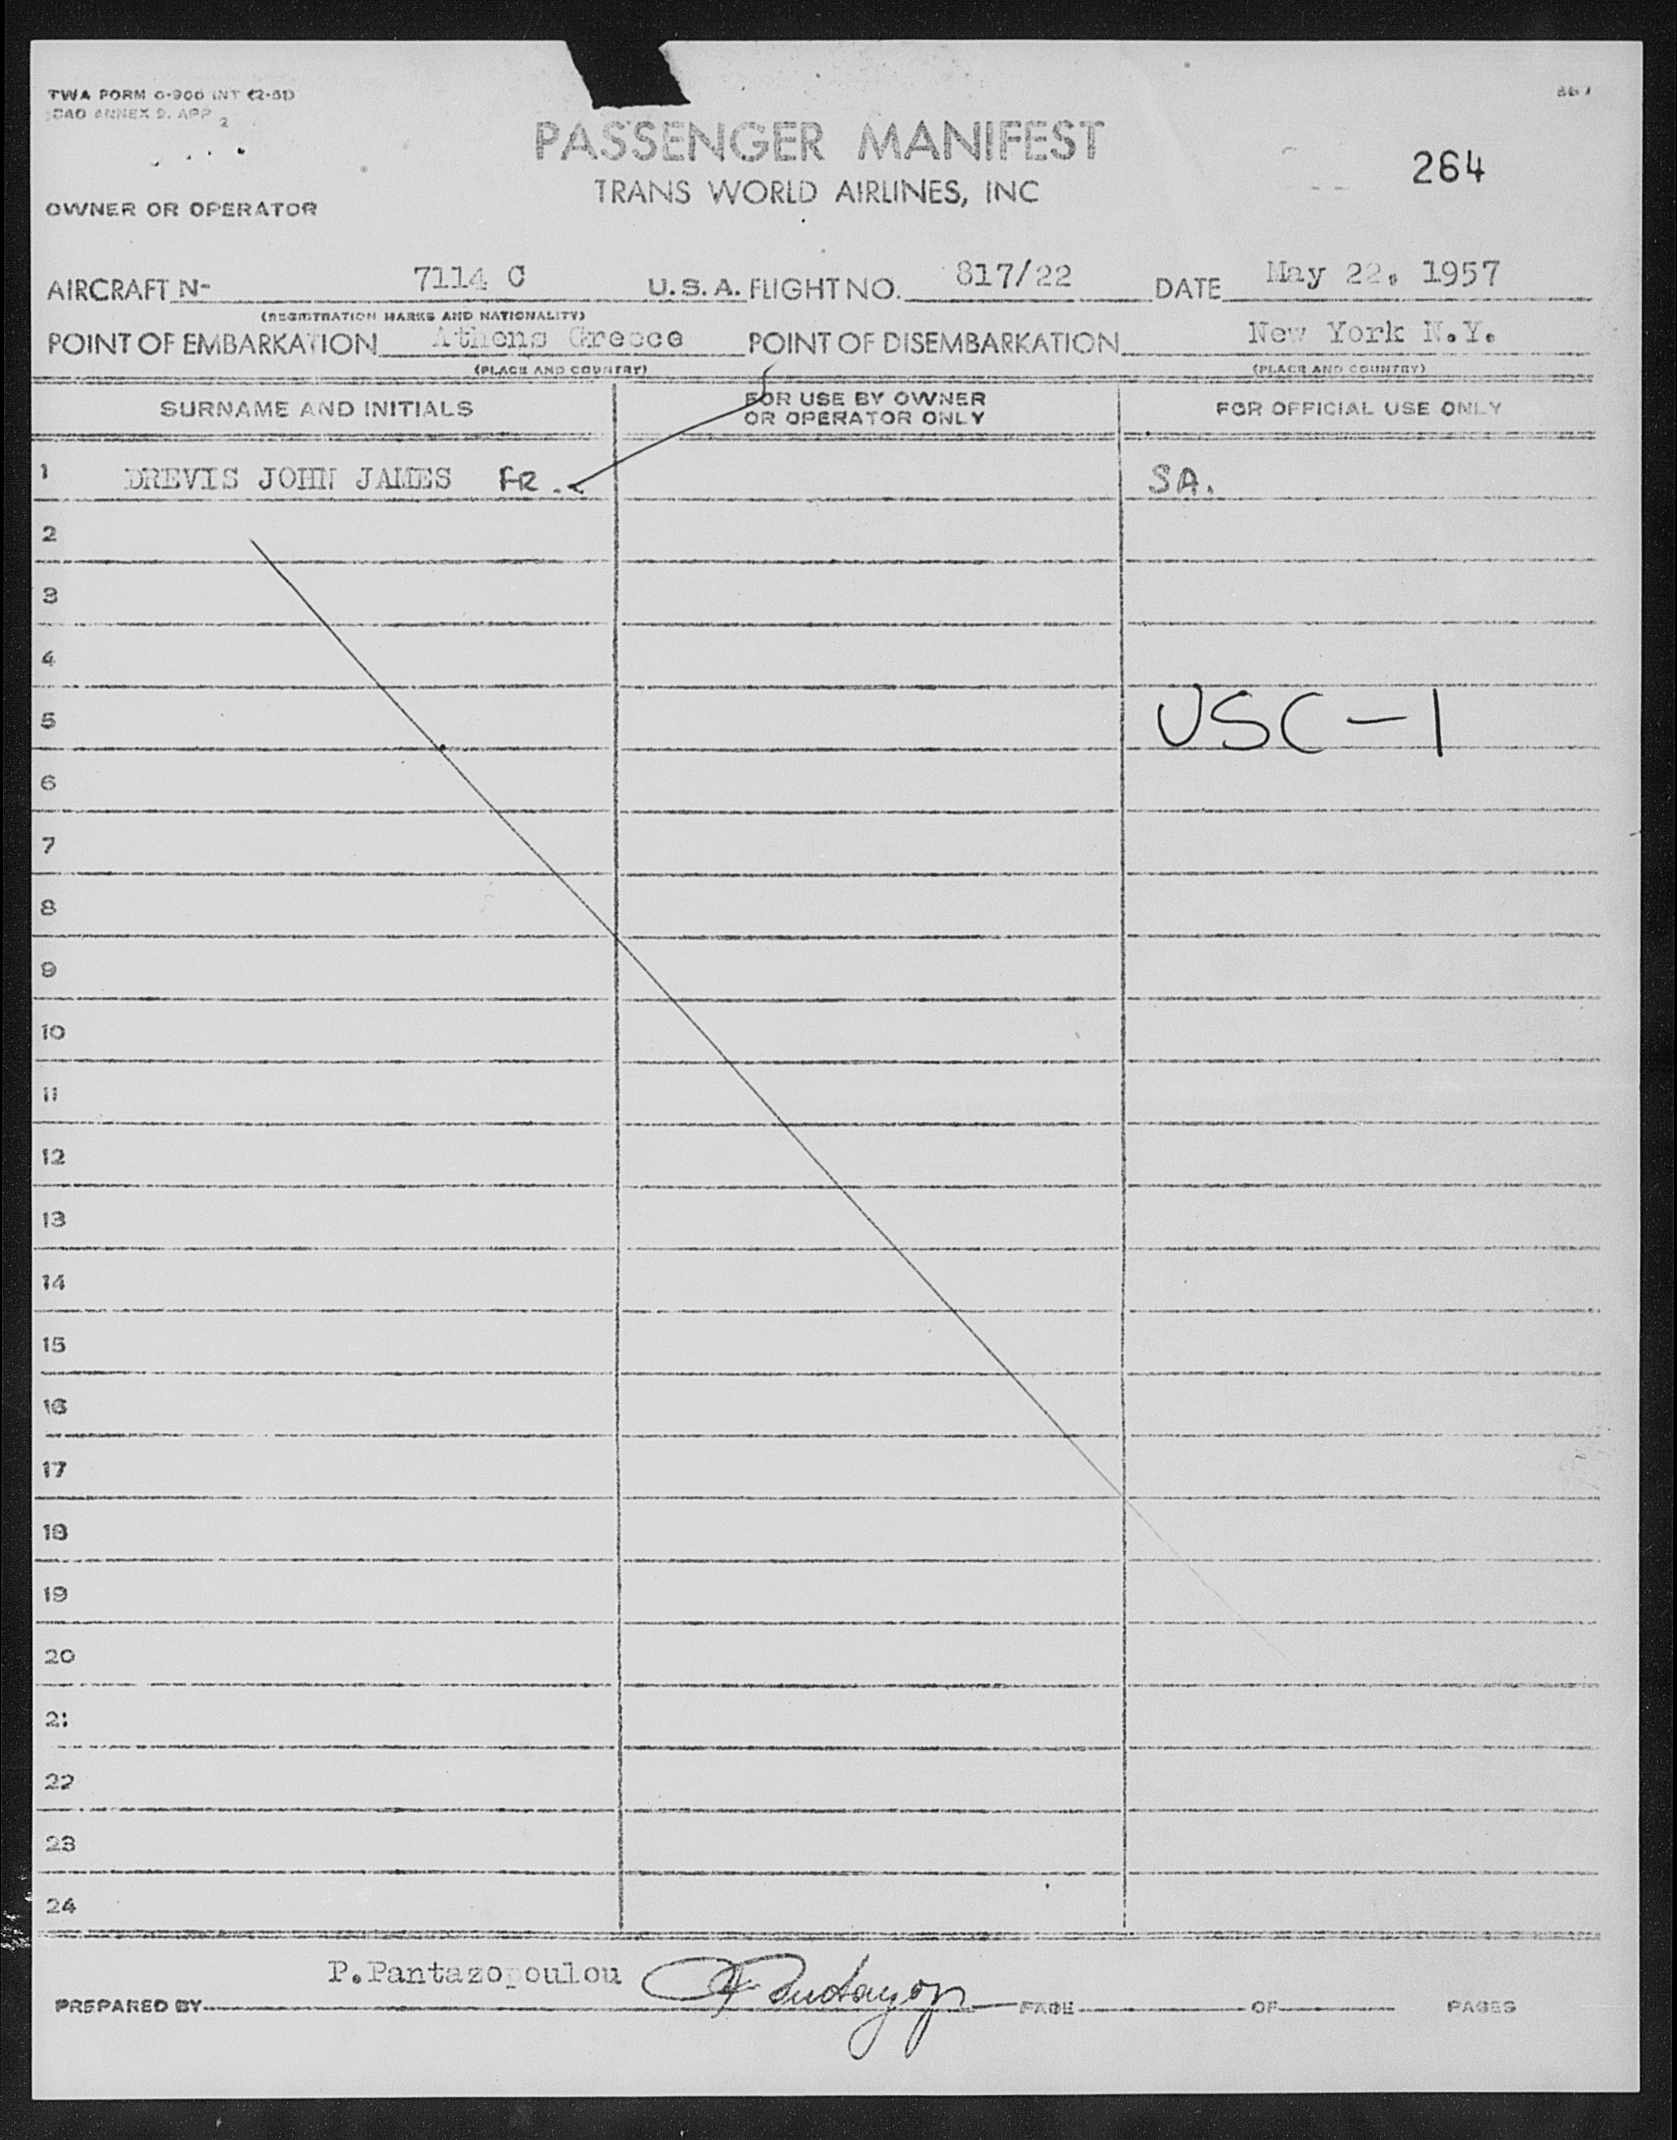 TWA FORM O-900 INT (2-51)
ICAO ANNEX 9. APP 2
PASSENGER MANIFEST
264
TRANS WORLD AIRLINES, INC
OWNER OR OPERATOR
AIRCRAFT N- 7114 C U.S.A. FLIGHT NO. 817/22 DATE May 22, 1957
(REGISTRATION MARKS AND NATIONALITY)
POINT OF EMBARKATION Athens Greece POINT OF DISEMBARKATION New York N.Y.
(PLACE AND COUNTRY) (PLACE AND COUNTRY)
SURNAME AND INITIALS FOR USE BY OWNER OR OPERATOR ONLY FOR OFFICIAL USE ONLY
1 DREVIS JOHN JAMES FR. SA.
2
3
4
5 USC-1
6
7
8
9
10
11
12
13
14
15
16
17
18
19
20
21
22
23
24
P.Pantazopoulou
PREPARED BY PAGE OF PAGES